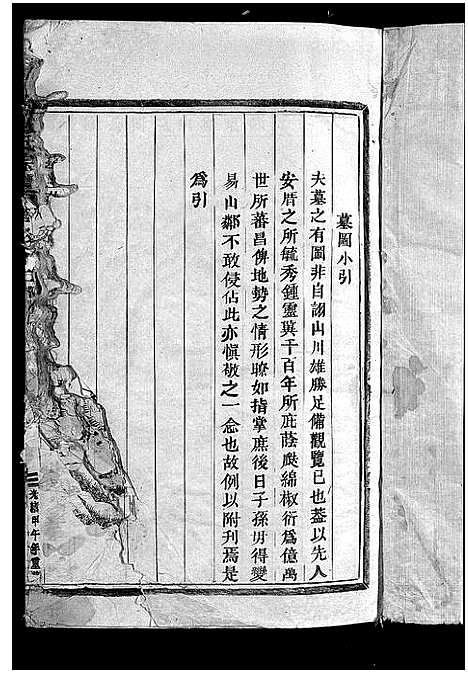 墓圖小引
夫墓之有圖非自詡山川雄勝足備觀覽已也葢以先人
安厝之所毓秀鍾靈異千百年所庇蔭瓞綿椒衍為億萬
世所蕃昌俾地勢之情形瞭如指掌庶後日子孫毋得變
易山鄰不敢侵佔此亦慎敬之一念也故例以附刊焉是
為引
光緒甲午年重